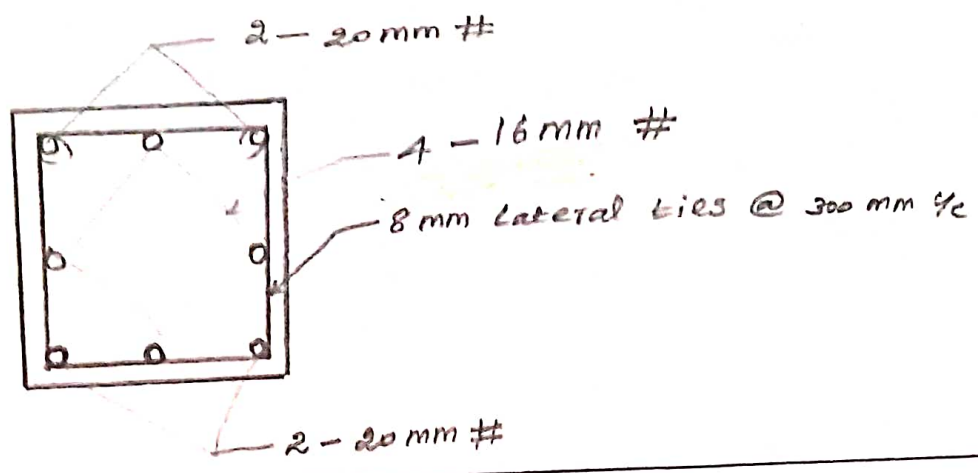 2 - 20 mm #
4 - 16 mm #
8 mm Lateral ties @ 300 mm c/c
2 - 20 mm #